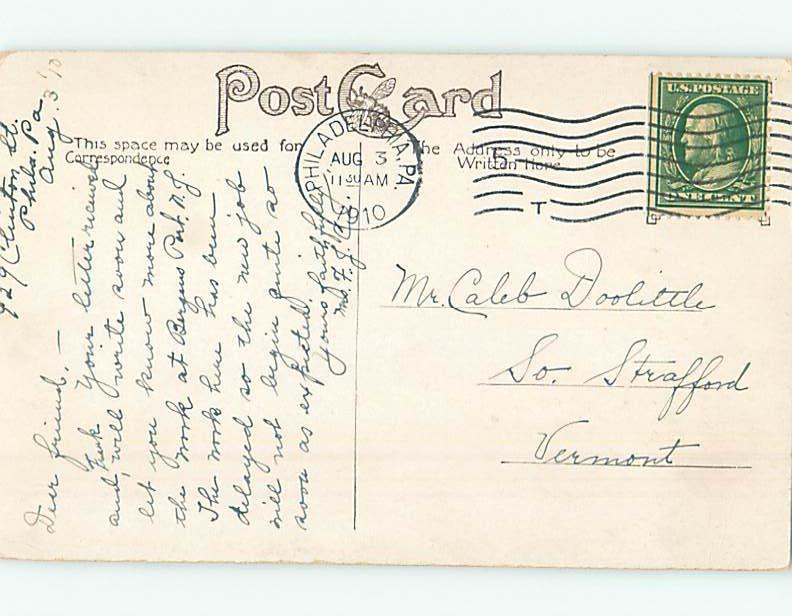 Post Card
This space may be used for
Correspondence
The Address only to be
Written Here
PHILADELPHIA, PA
AUG 3
11 30 AM
1910
T
U.S. POSTAGE
ONE CENT
929 Clinton St.
Phila. Pa
Aug. 3 '10
Dear friend. —
Your letter received
and will write soon and
let you know more about
the work at Bergens Port. N.J.
The work here has been
delayed so the new job
will not begin quite so
soon as expected.
Yours faithfully
F. J.
Mr. Caleb Doolittle
So. Strafford
Vermont